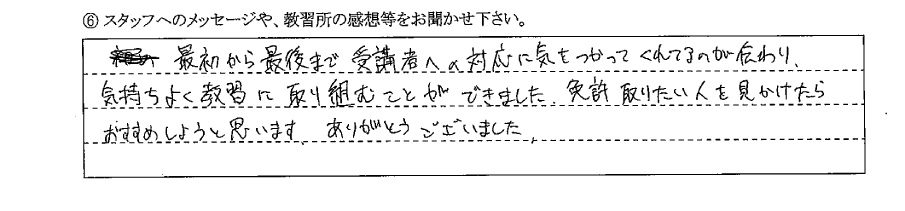 ⑥ スタッフへのメッセージや、教習所の感想等をお聞かせ下さい。
最初から最後まで受講者への対応に気をつかってくれてるのが伝わり、
気持ちよく教習に取り組むことができました。免許取りたい人を見かけたら
おすすめしようと思います。ありがとうございました。